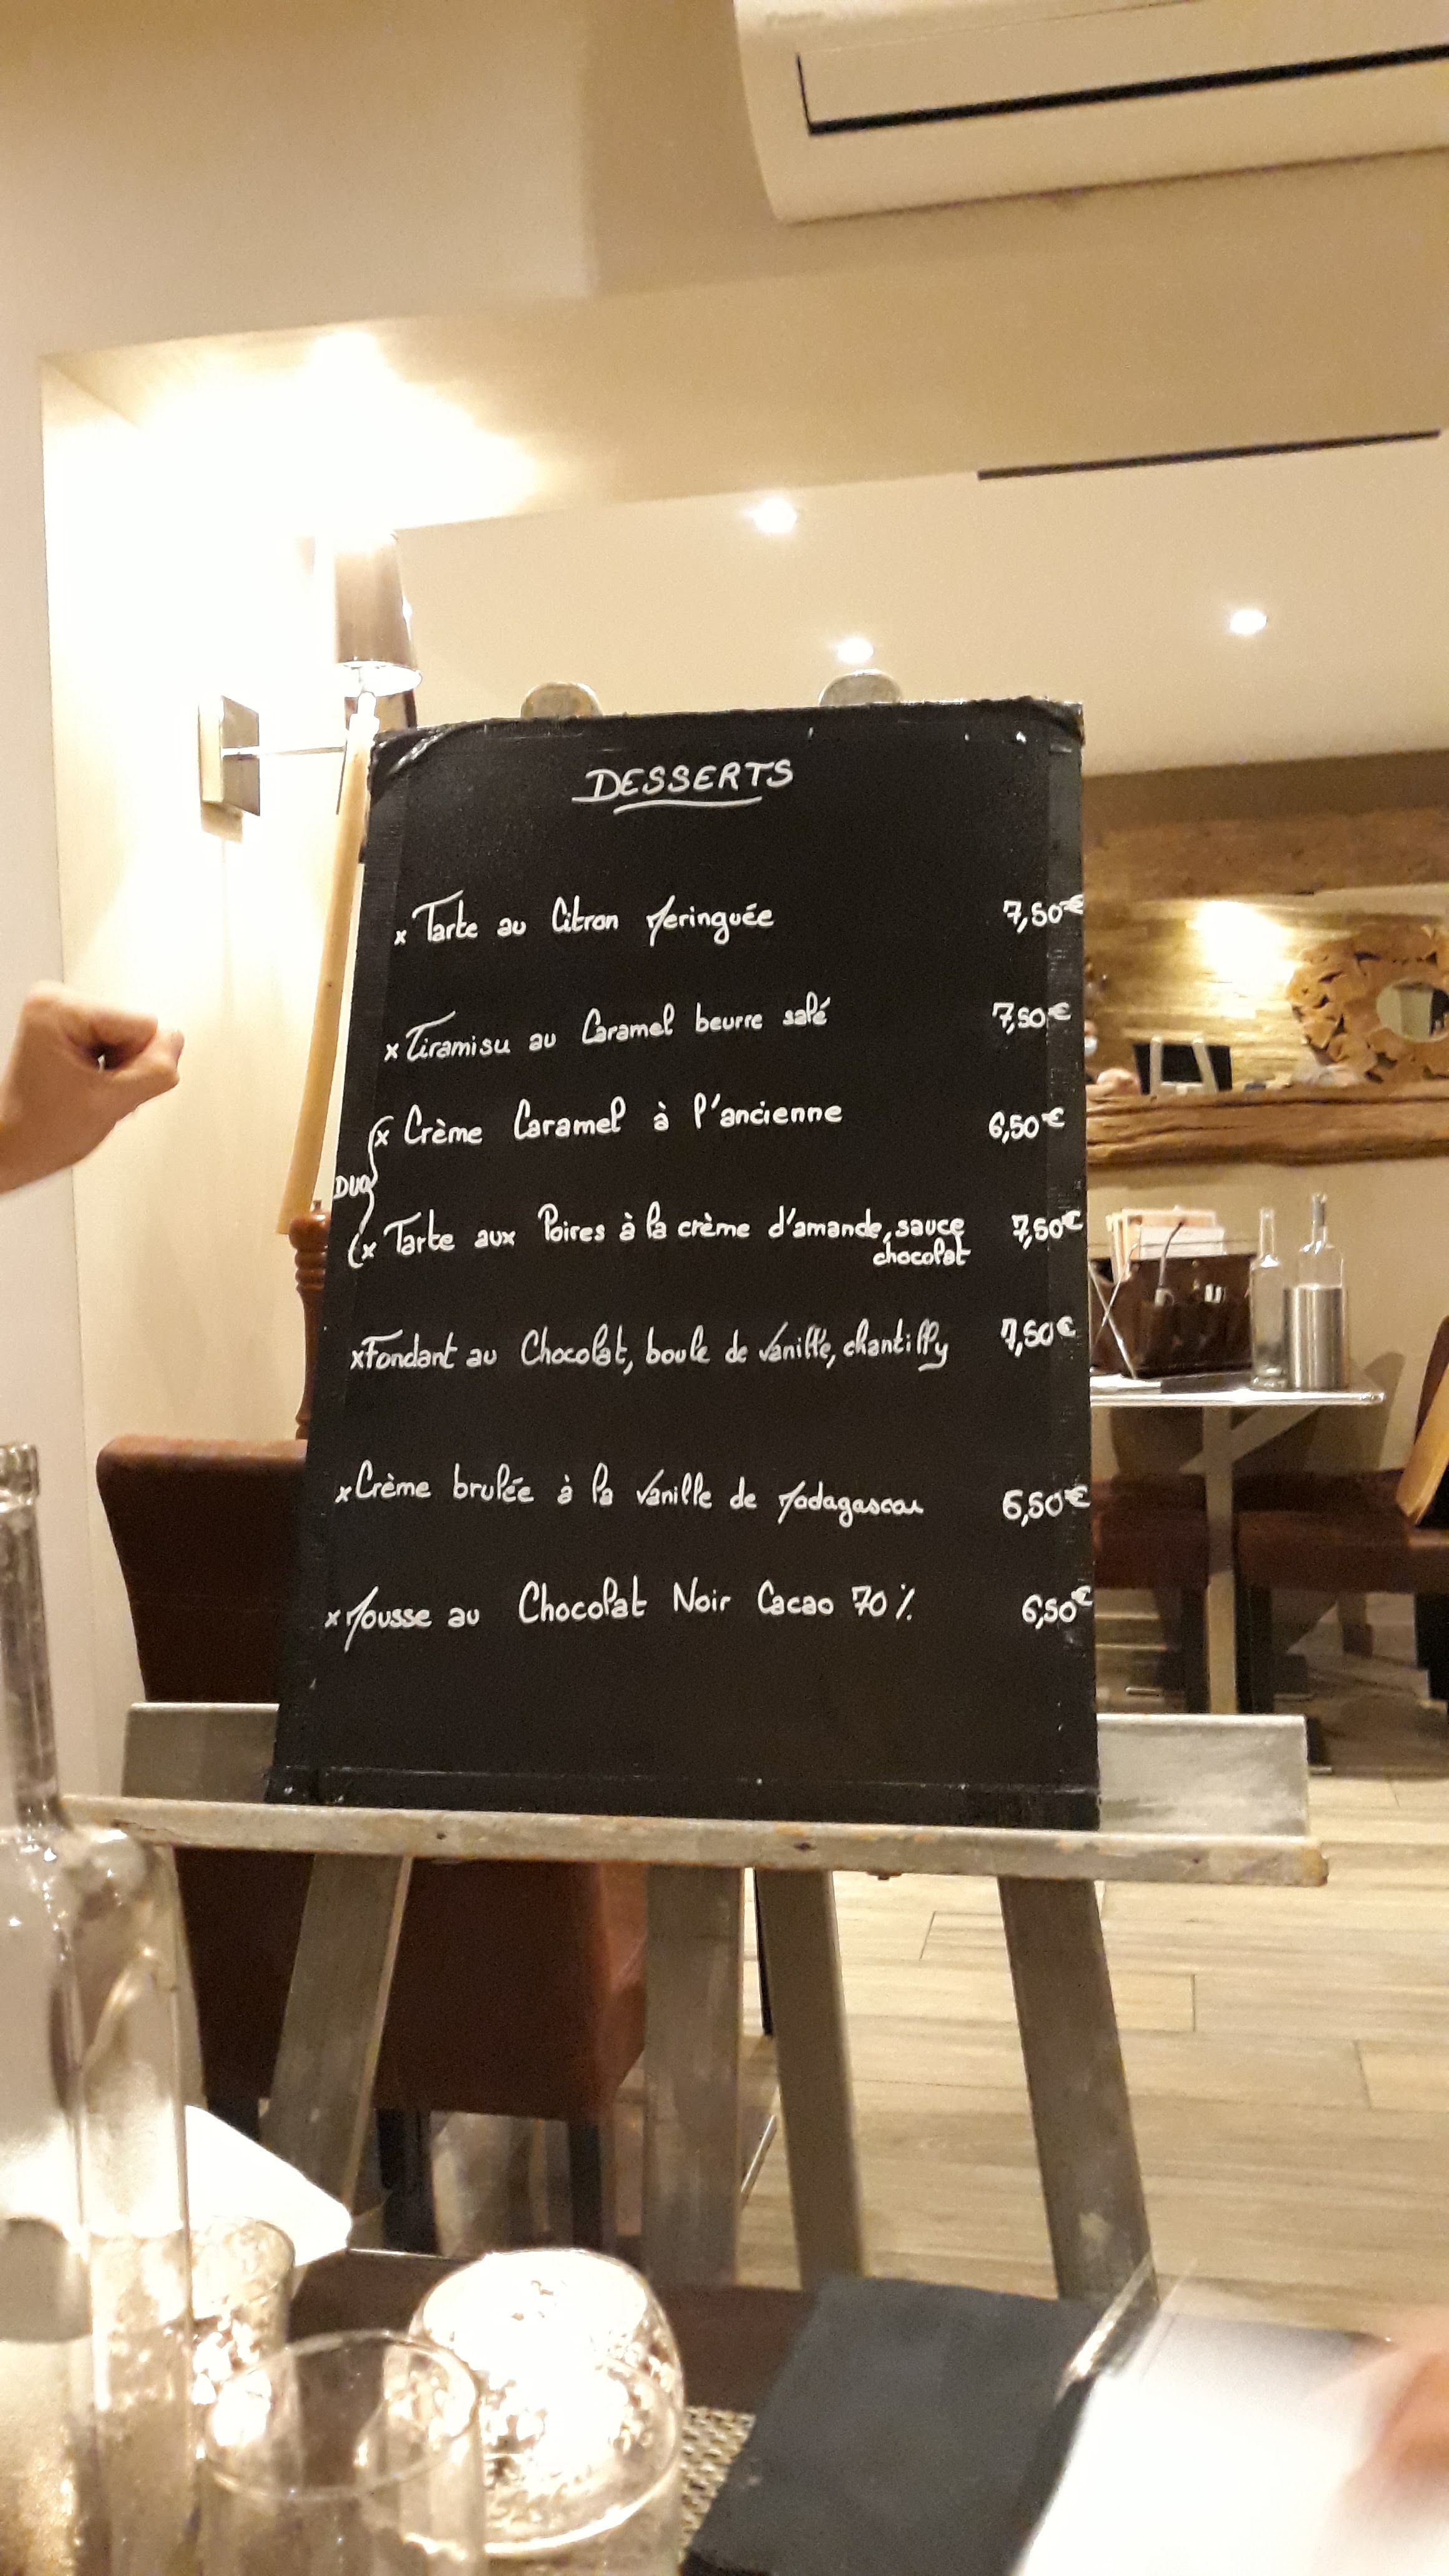 DESSERTS
x Tarte au Citron Meringuée 7,50€
x Tiramisu au Caramel beurre salé 7,50€
x Crème Caramel à l'ancienne 6,50€
DUO
x Tarte aux Poires à la crème d'amande, sauce 7,50€
chocolat
x Fondant au Chocolat, boule de vanille, chantilly 7,50€
x Crème brulée à la vanille de Madagascar 6,50€
x Mousse au Chocolat Noir Cacao 70% 6,50€